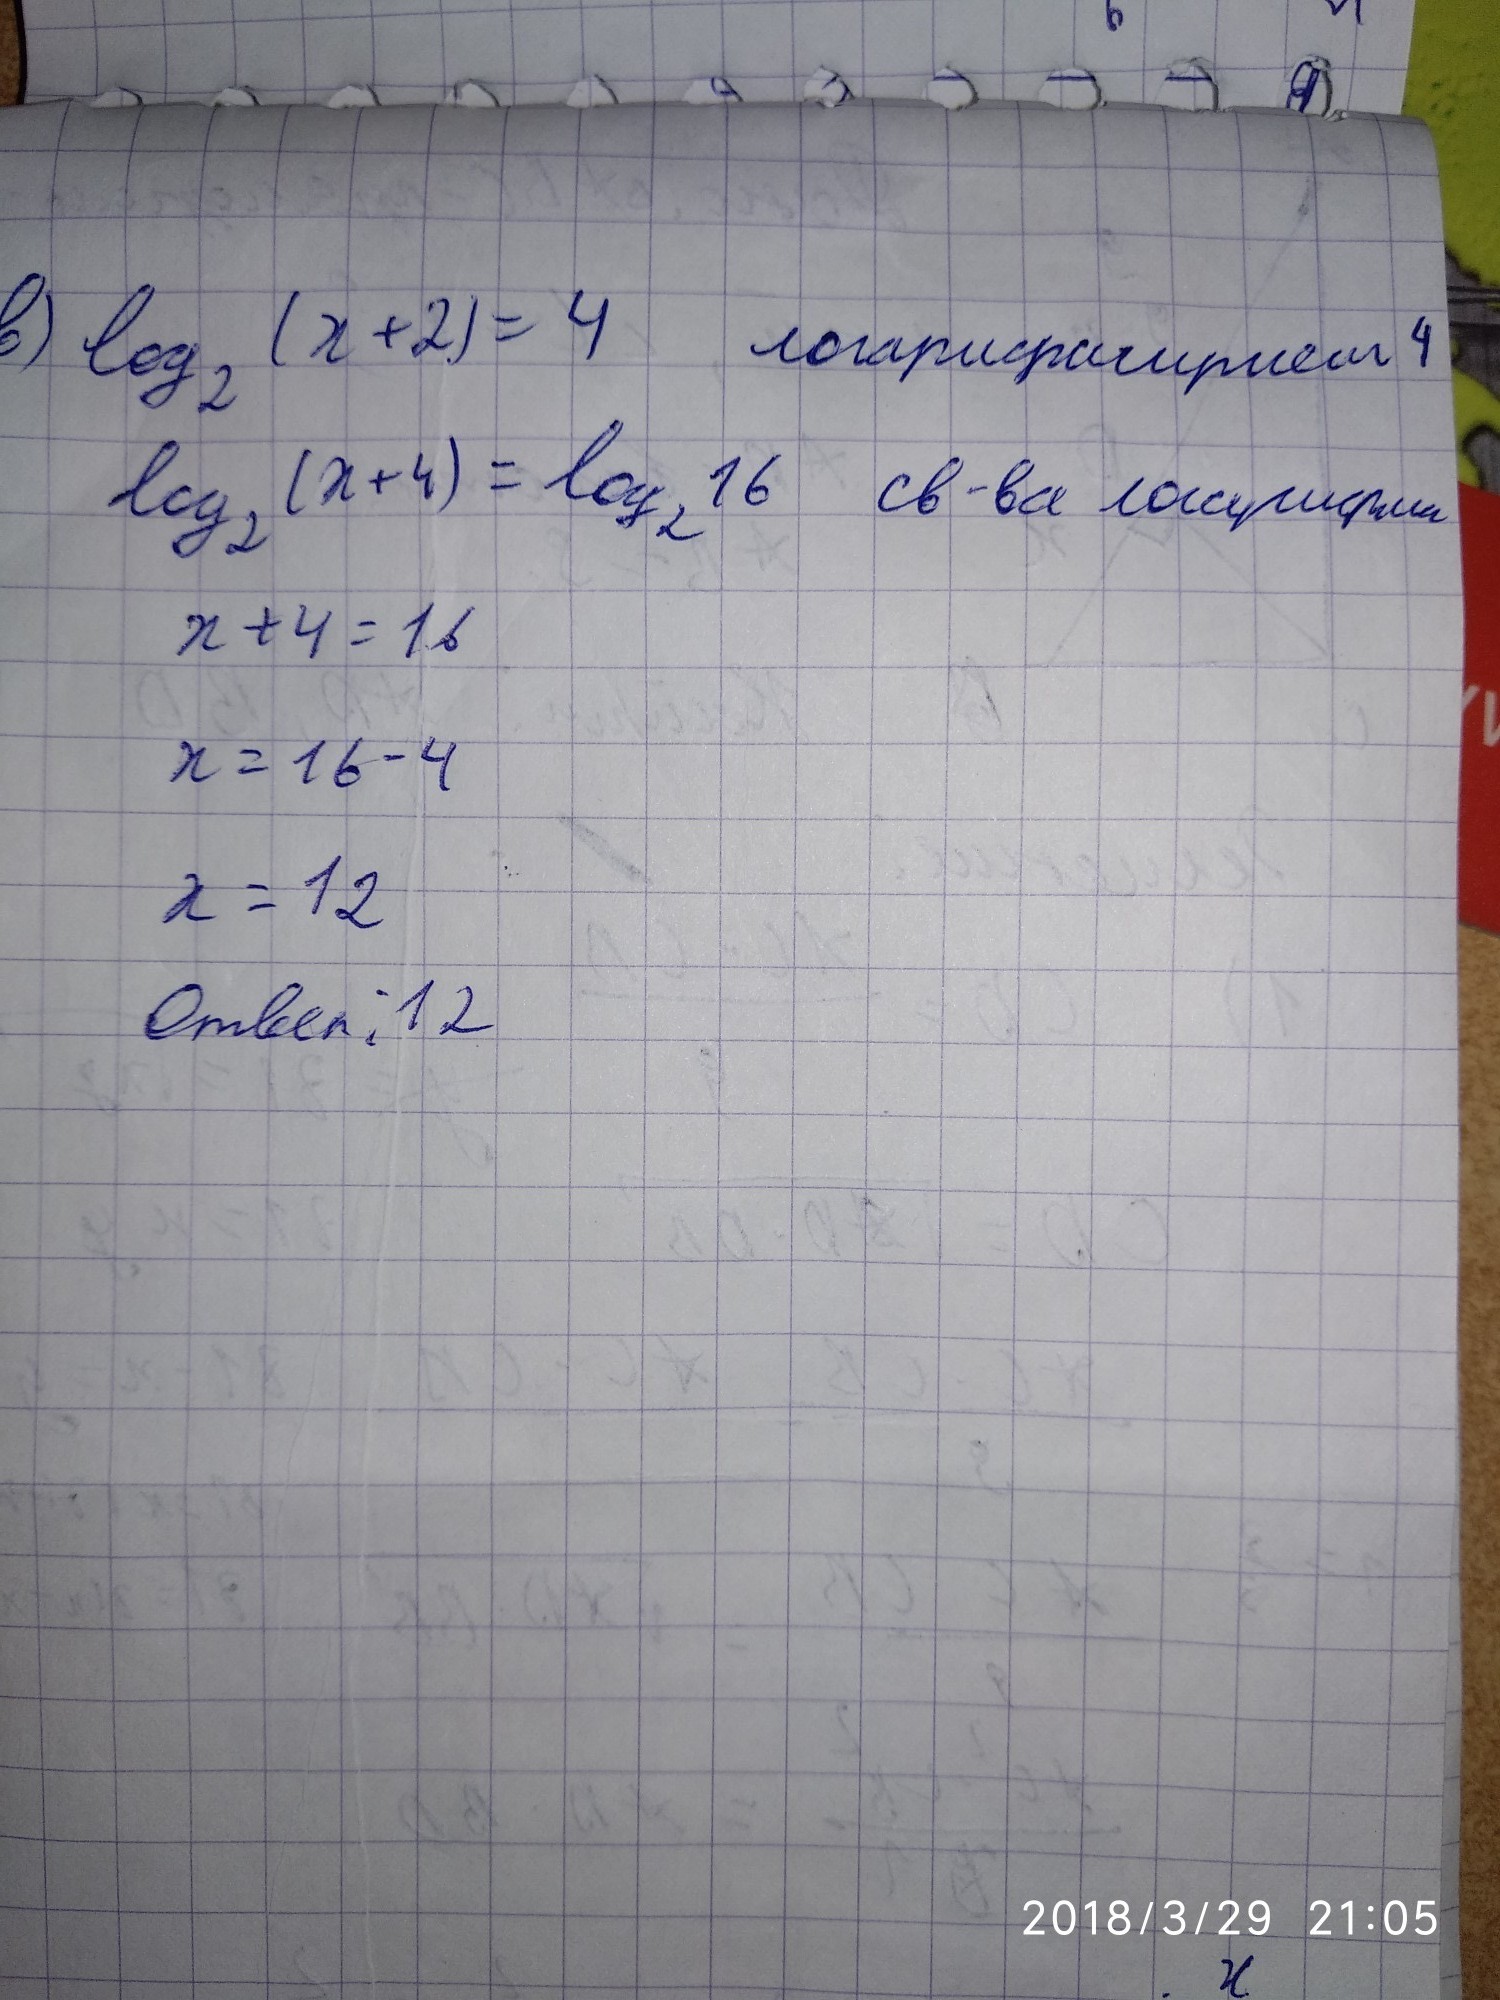 в) log₂ (x+2) = 4 логарифмируем 4
log₂ (x+4) = log₂ 16 св-ва логарифма
x+4=16
x=16-4
x=12
Ответ: 12
2018/3/29 21:05
x